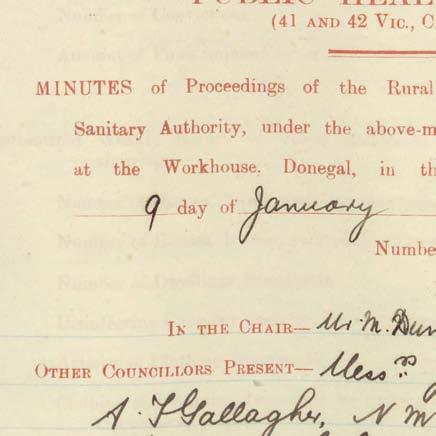 PUBLIC HEAL
(41 AND 42 VIC., C
MINUTES of Proceedings of the Rural
Sanitary Authority, under the above-m
at the Workhouse, Donegal, in th
9 day of January
Numbe
IN THE CHAIR— Mr. M. Dun
OTHER COUNCILLORS PRESENT— Messrs
A. T Gallagher, N M